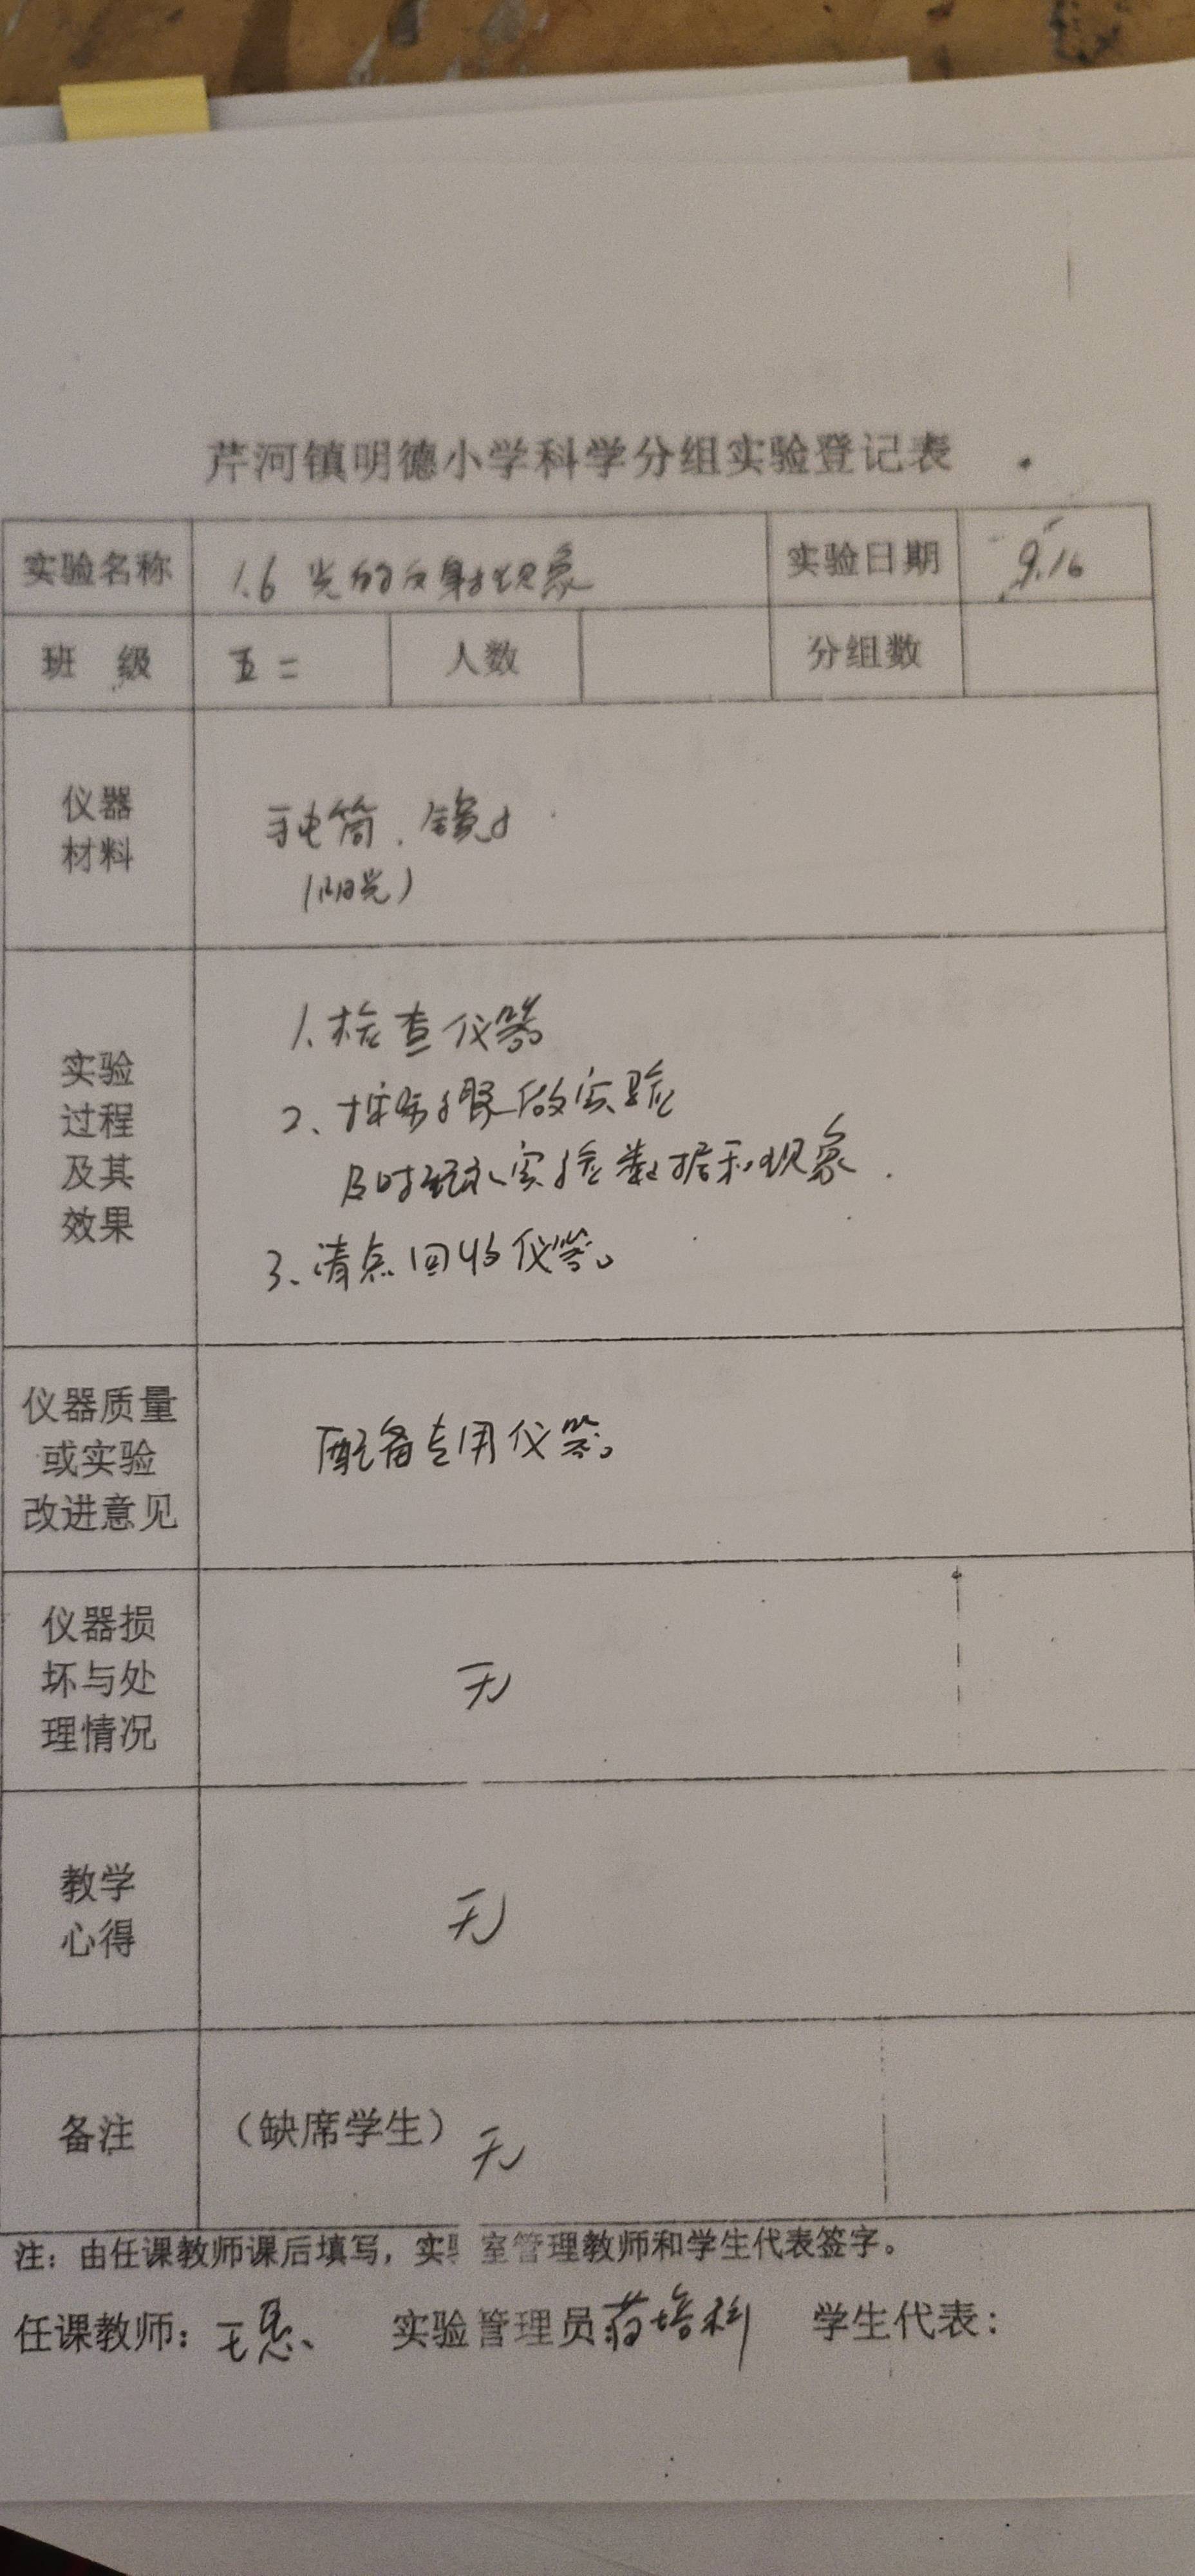 芹河镇明德小学科学分组实验登记表
实验名称 1.6 光的反射现象 实验日期 9.16
班 级 五二 人数 分组数
仪器
材料
手电筒、镜子
(阳光)
实验
过程
及其
效果
1、检查仪器
2、按步骤做实验
及时记录实验数据和现象.
3、清点回收仪器。
仪器质量
或实验
改进意见
配备专用仪器。
仪器损
坏与处
理情况
无
教学
心得
无
备注
(缺席学生) 无
注：由任课教师课后填写，实验室管理教师和学生代表签字。
任课教师： 实验管理员 培科 学生代表：